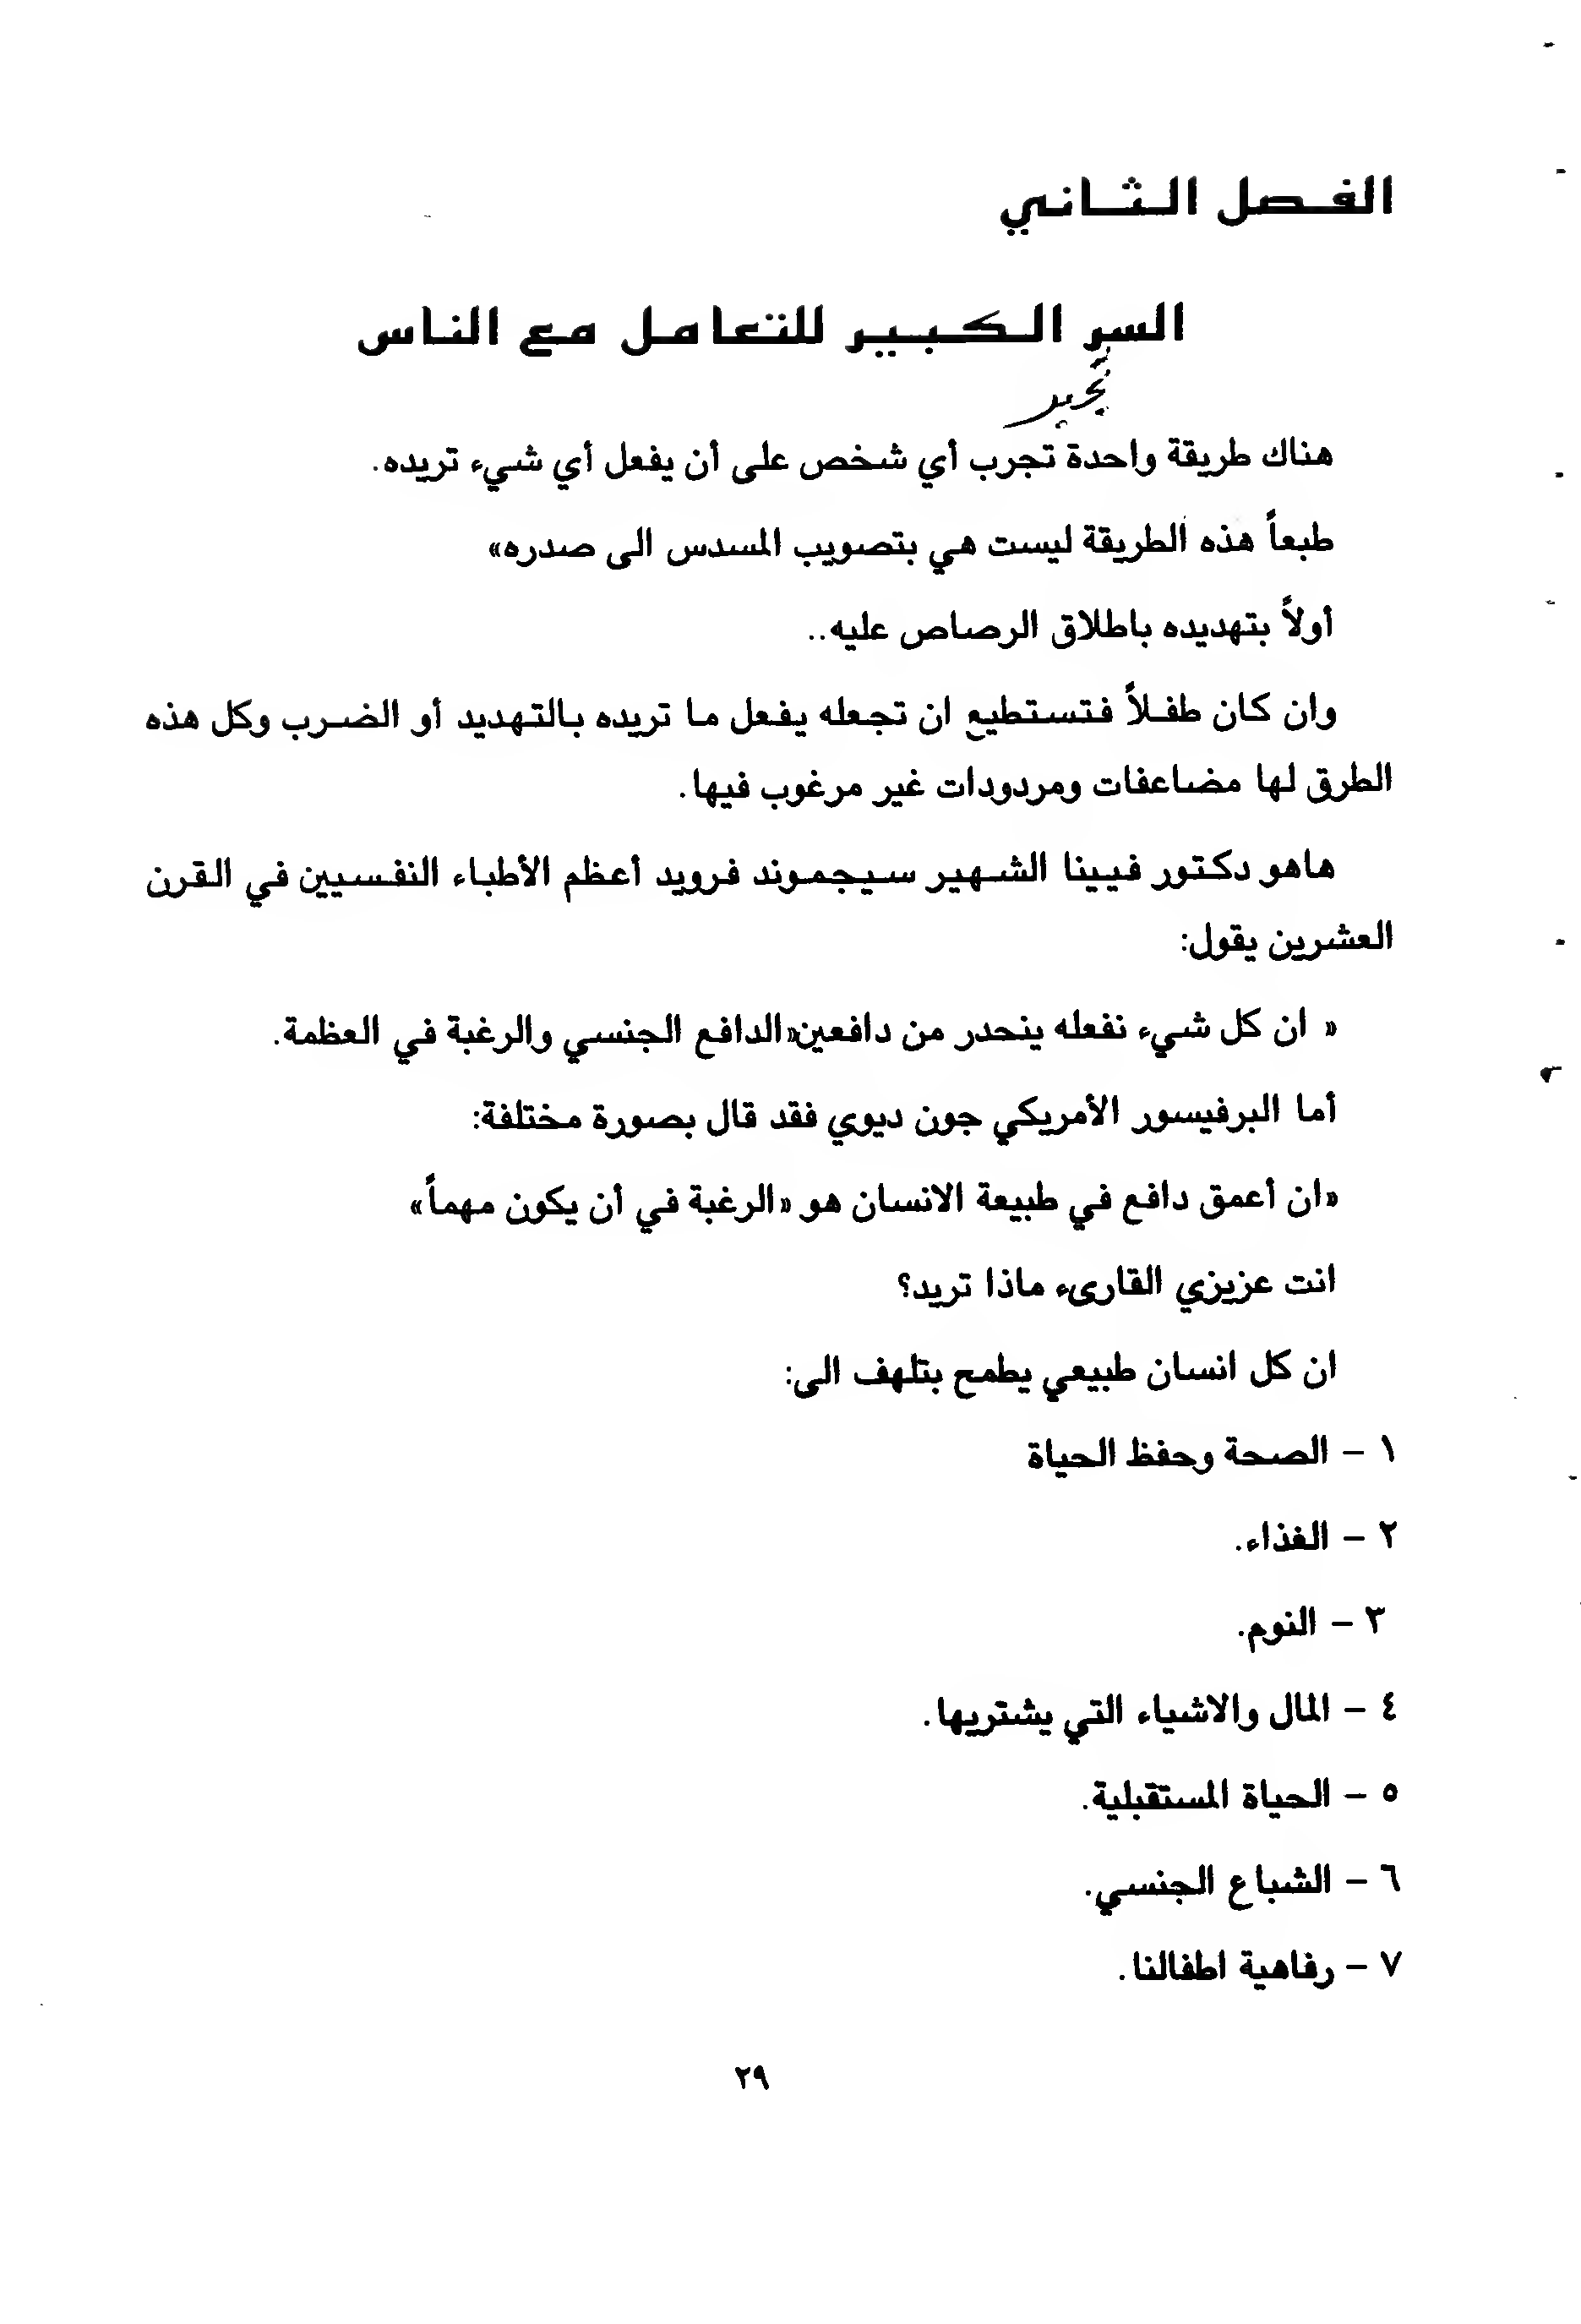 الفصل الثاني
السر الكبير للتعامل مع الناس
هناك طريقة واحدة تجرب أي شخص على أن يفعل أي شيء تريده.
طبعاً هذه الطريقة ليست هي بتصويب المسدس الى صدره»
أولاً بتهديده باطلاق الرصاص عليه..
وان كان طفلاً فتستطيع ان تجعله يفعل ما تريده بالتهديد أو الضرب وكل هذه
الطرق لها مضاعفات ومردودات غير مرغوب فيها.
هاهو دكتور فيينا الشهير سيجموند فرويد أعظم الأطباء النفسيين في القرن
العشرين يقول:
« ان كل شيء نفعله ينحدر من دافعين«الدافع الجنسي والرغبة في العظمة.
أما البرفيسور الأمريكي جون ديوي فقد قال بصورة مختلفة:
«ان أعمق دافع في طبيعة الانسان هو «الرغبة في أن يكون مهماً»
انت عزيزي القارىء ماذا تريد؟
ان كل انسان طبيعي يطمح بتلهف الى:
١ – الصحة وحفظ الحياة
٢ – الغذاء.
٣ – النوم.
٤ – المال والاشياء التي يشتريها.
٥ – الحياة المستقبلية.
٦ – الشباع الجنسي.
٧ – رفاهية اطفالنا.
٢٩